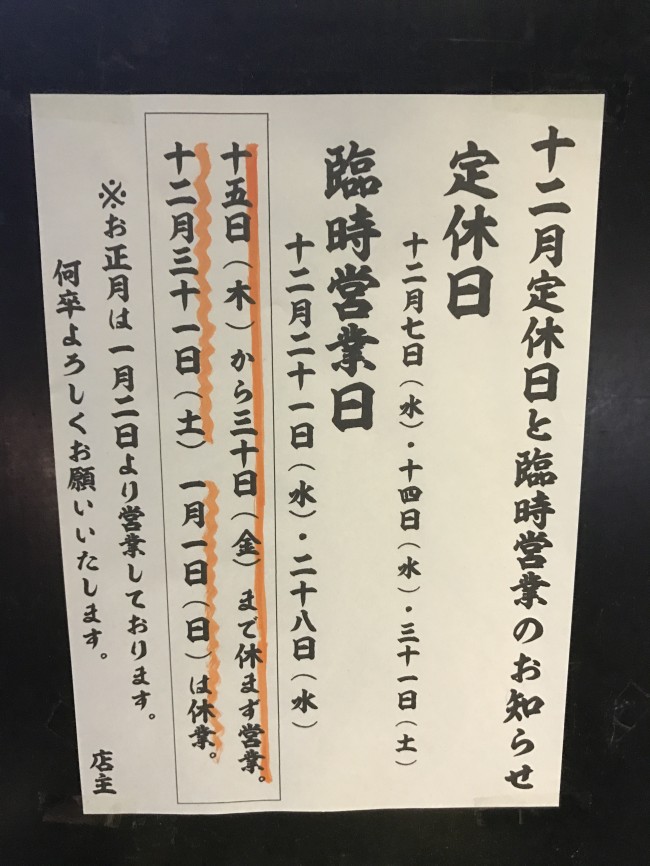 十二月定休日と臨時営業のお知らせ
定休日
十二月七日（水）・十四日（水）・三十一日（土）
臨時営業日
十二月二十一日（水）・二十八日（水）
十五日（木）から三十日（金）まで休まず営業。
十二月三十一日（土）一月一日（日）は休業。
※お正月は一月二日より営業しております。
何卒よろしくお願いいたします。
店主